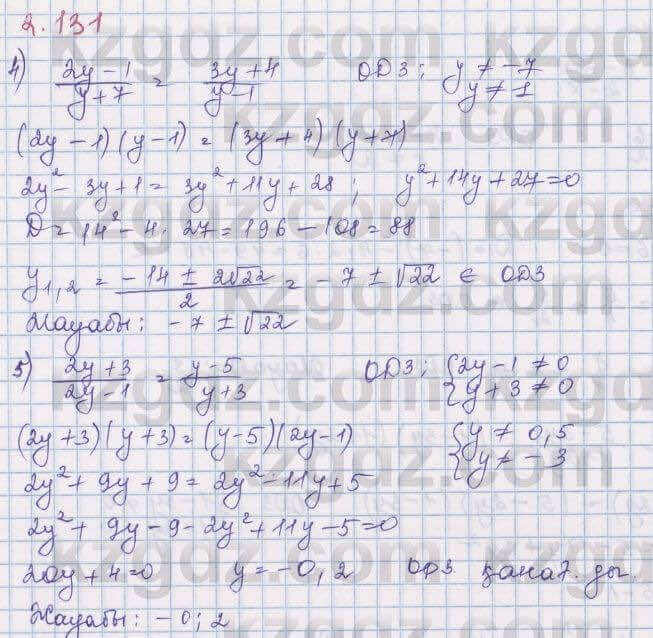 2.131
4) (2y-1)/(y+7) = (3y+4)/(y-1) ОДЗ; y ≠ -7
y ≠ 1
(2y-1)(y-1) = (3y+4)(y+7)
2y² - 3y+1 = 3y² + 11y + 28; y² + 14y + 27 = 0
D = 14² - 4·27 = 196 - 108 = 88
y₁,₂ = (-14 ± 2√22)/2 = -7 ± √22 ∈ ОДЗ
Жауабы: -7 ± √22
5) (2y+3)/(2y-1) = (y-5)/(y+3) ОДЗ; { 2y-1 ≠ 0
{ y+3 ≠ 0
(2y+3)(y+3) = (y-5)(2y-1) { y ≠ 0,5
{ y ≠ -3
2y² + 9y + 9 = 2y² - 11y + 5
2y² + 9y - 9 - 2y² + 11y - 5 = 0
20y + 4 = 0 y = -0,2 ОДЗ қанағ. ды.
Жауабы: -0; 2
kzgdz.com